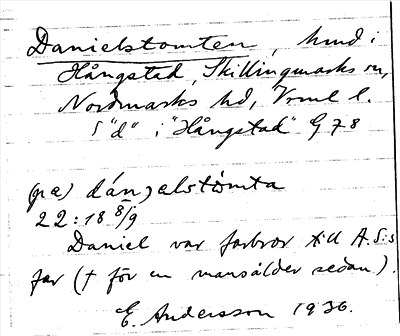 Danielstomten, hmd i
Hångstad, Skillingmarks sn,
Nordmarks hd, Vrml l.
S "d" i "Hångstad" G 78
(pæ) dán,elstòmta
22:18 8/9
Daniel var farbror till A.S:s
far († för en mansålder sedan).
E. Andersson 1936.